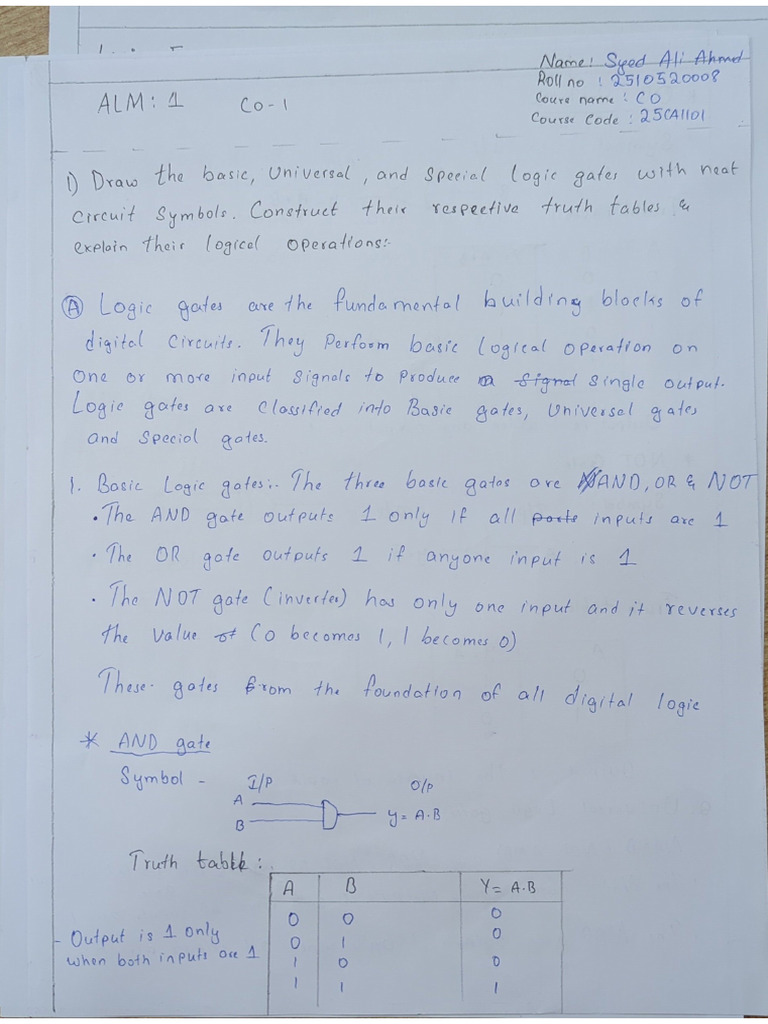 Name: Syed Ali Ahmed
Roll no : 2510520008
Coure name : CO
Course Code : 25CA1101
ALM: 1 CO-1
1) Draw the basic, Universal, and Special logic gates with neat
Circuit Symbols. Construct their respective truth tables &
explain their logical operations:-
(A) Logic gates are the fundamental building blocks of
digital circuits. They Perform basic logical operation on
one or more input signals to produce a signal single output.
Logic gates are classified into Basic gates, Universal gates
and special gates.
1. Basic Logic gates:- The three basic gates are AND, OR & NOT
• The AND gate outputs 1 only if all ports inputs are 1
• The OR gate outputs 1 if anyone input is 1
• The NOT gate (inverter) has only one input and it reverses
the value of (0 becomes 1, 1 becomes 0)
These gates from the foundation of all digital logic
* AND gate
Symbol - I/P O/P
A
B Y = A.B
Truth table :
A B Y = A.B
0 0 0
0 1 0
1 0 0
1 1 1
- Output is 1 only
when both inputs are 1